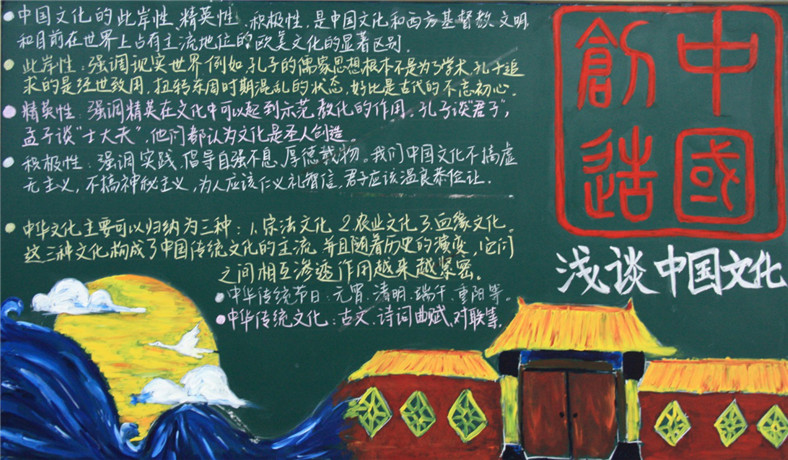 中国文化的此岸性、精英性、积极性,是中国文化和西方基督教文明
和目前在世界上占有主流地位的欧美文化的显著区别。
此岸性:强调现实世界,例如,孔子的儒家思想根本不是为了学术,孔子追
求的是经世致用,扭转东周时期混乱的状态,好比是古代的不忘初心。
精英性:强调精英在文化中可以起到示范教化的作用。孔子谈“君子”,
孟子谈“士大夫”,他们都认为文化是圣人创造。
积极性:强调实践,倡导自强不息、厚德载物。我们中国文化不搞虚
无主义,不搞神秘主义,为人应该仁义礼智信,君子应该温良恭俭让。
中华文化主要可以归纳为三种:1.宗法文化 2.农业文化 3.血缘文化。
这三种文化构成了中国传统文化的主流,并且随着历史的演变,它们
之间相互渗透作用越来越紧密。
中华传统节日:元宵、清明、端午、重阳等。
中华传统文化:古文、诗词曲赋、对联等。
中國
創造
浅谈中国文化